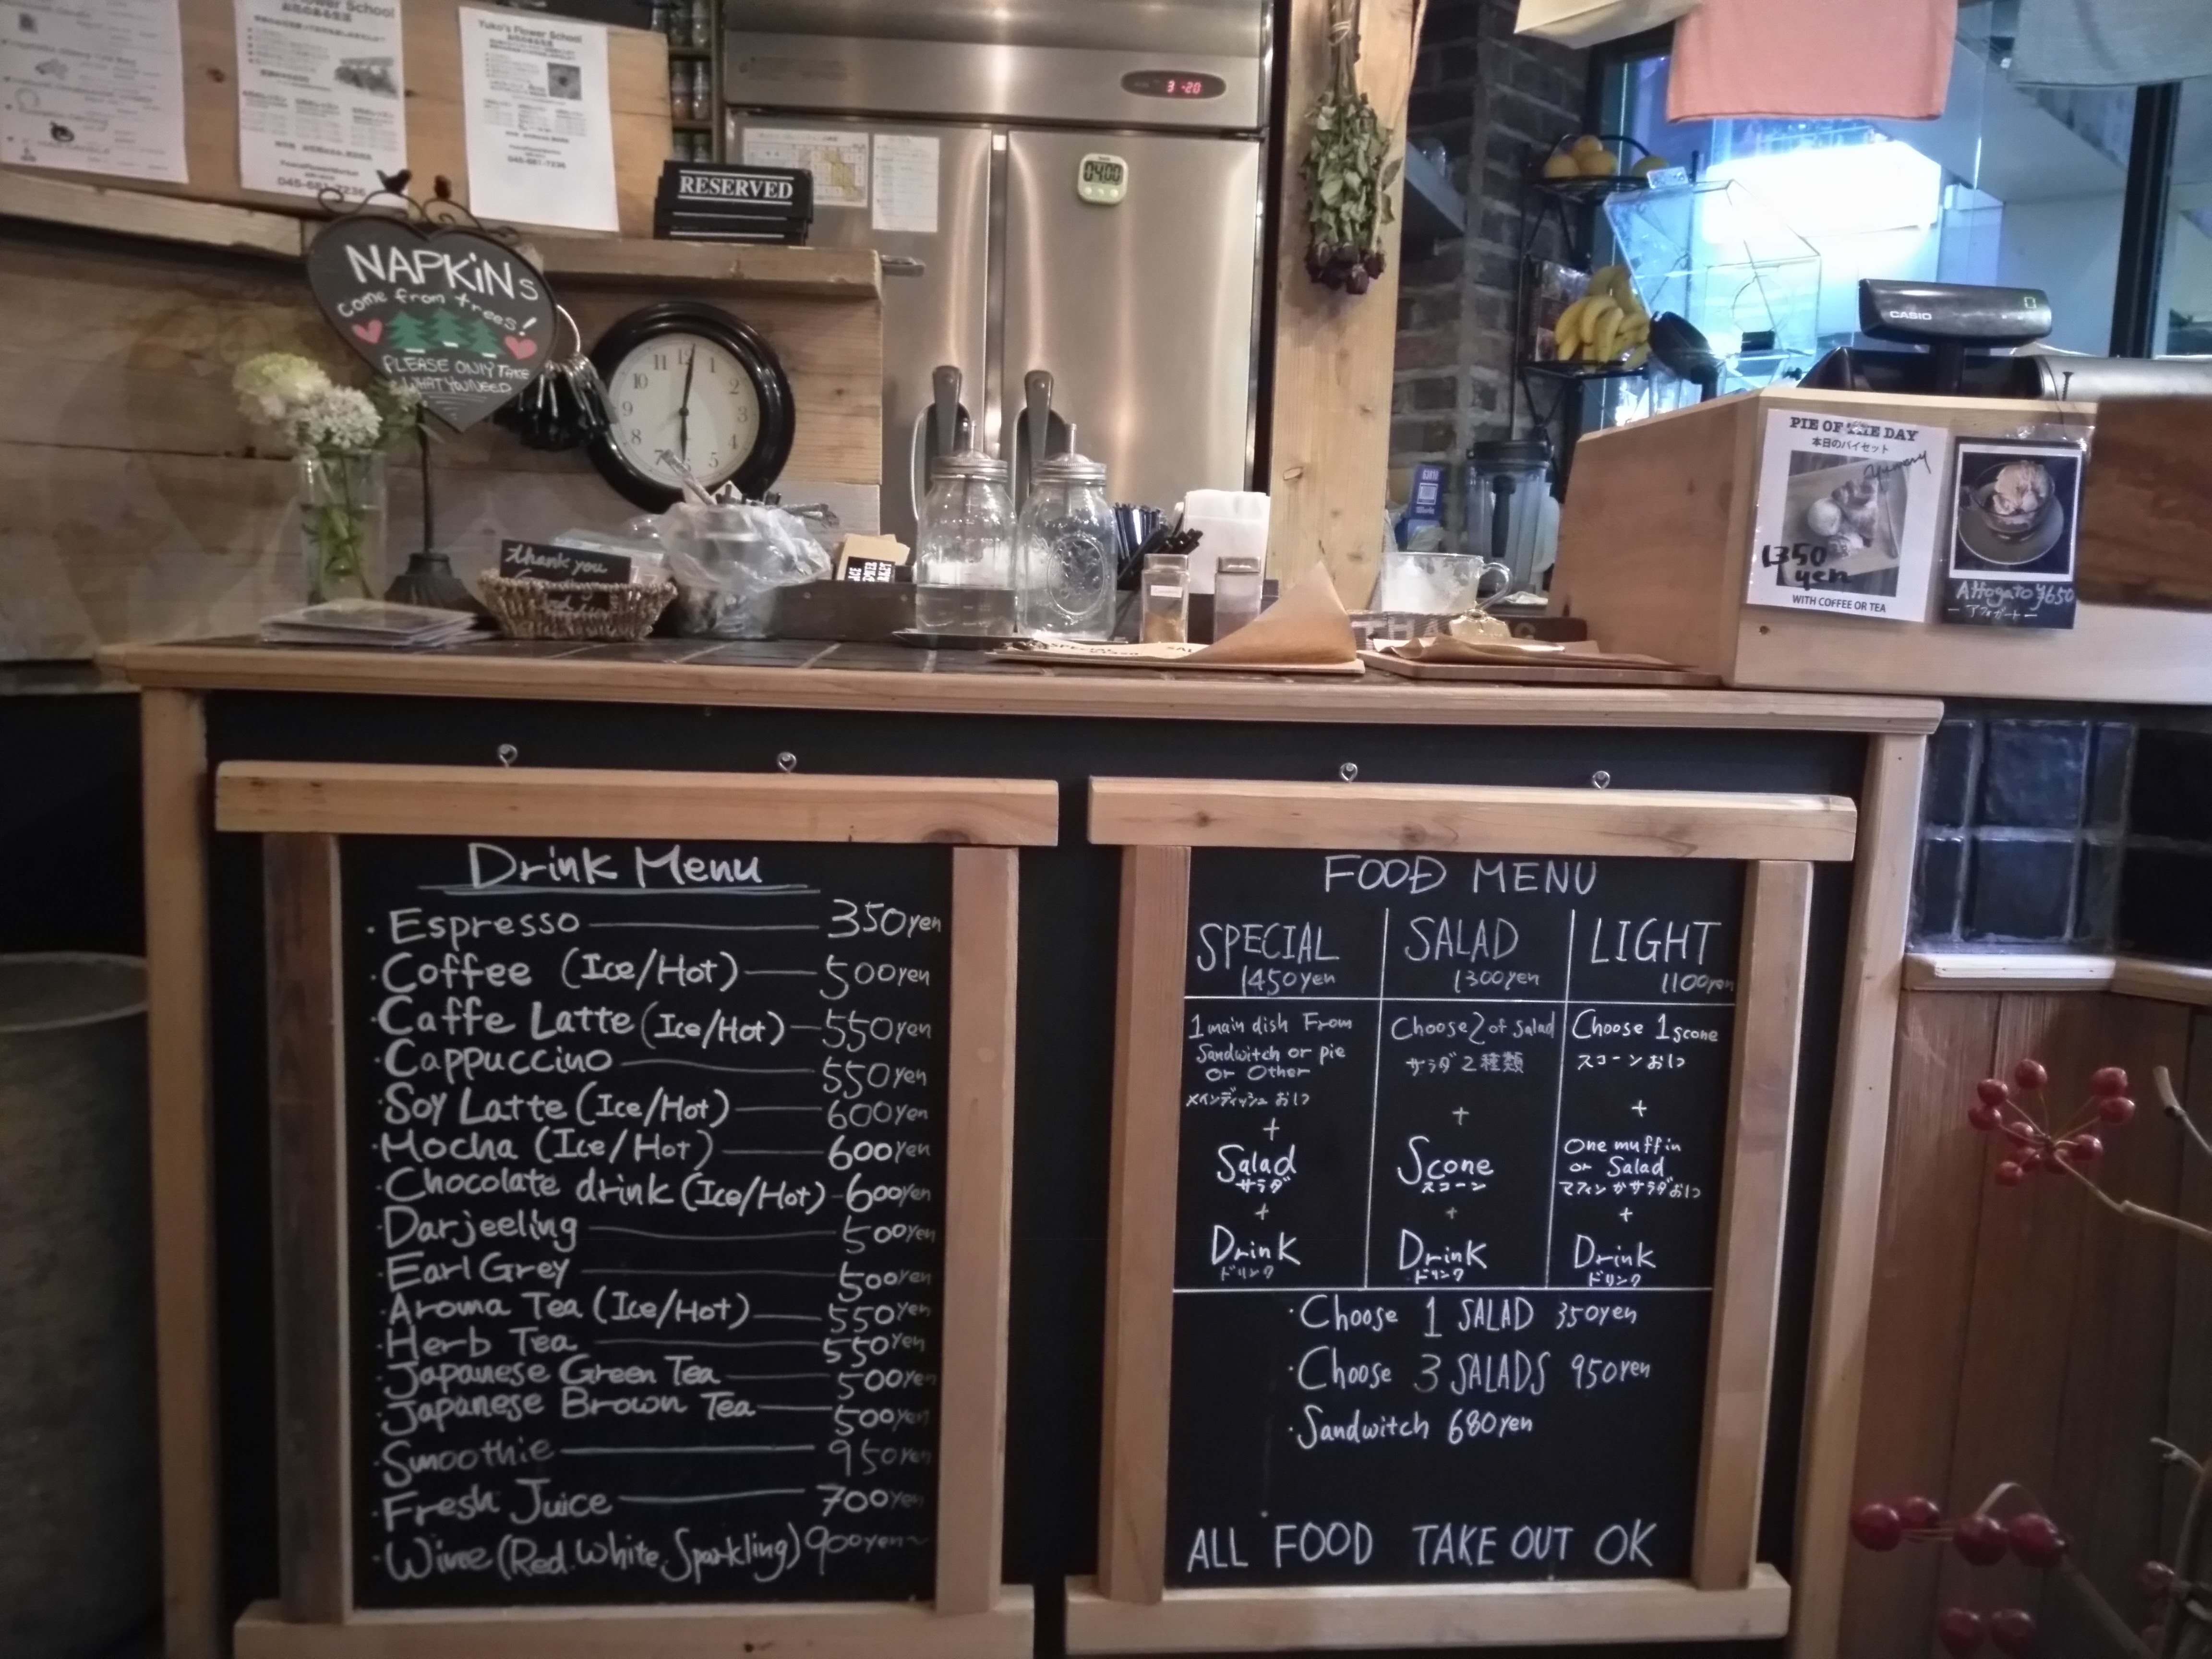 Flower School
045-681-7236
Yuko's Flower School
お花のある生活
045-681-7236
RESERVED
3 -20
04:00
NAPKiNs
come from trees!
PLEASE ONLY TAKE
WHAT YOU NEED
12
1
2
3
5
7
8
9
10
11
thank you
CASIO
PIE OF THE DAY
本日のパイセット
Yummy
1350
yen
WITH COFFEE OR TEA
Affogato ¥650
ーアフォガートー
Drink Menu
・Espresso 350yen
・Coffee (Ice/Hot) 500yen
・Caffe Latte (Ice/Hot) 550yen
・Cappuccino 550yen
・Soy Latte (Ice/Hot) 600yen
・Mocha (Ice/Hot) 600yen
・Chocolate drink (Ice/Hot) 600yen
・Darjeeling 500yen
・Earl Grey 500yen
・Aroma Tea (Ice/Hot) 550yen
・Herb Tea 550yen
・Japanese Green Tea 500yen
・Japanese Brown Tea 500yen
・Smoothie 950yen
・Fresh Juice 700yen
・Wine (Red. White. Sparkling) 900yen~
FOOD MENU
SPECIAL
1450yen
1 main dish From
Sandwitch or pie
or Other
メインディッシュ お1つ
+
Salad
サラダ
+
Drink
ドリンク
SALAD
1300yen
Choose 2 of salad
サラダ 2種類
+
Scone
スコーン
+
Drink
ドリンク
LIGHT
1100yen
Choose 1 scone
スコーンお1つ
+
One muffin
or Salad
マフィンかサラダお1つ
+
Drink
ドリンク
・Choose 1 SALAD 350yen
・Choose 3 SALADS 950yen
・Sandwitch 680yen
ALL FOOD TAKE OUT OK